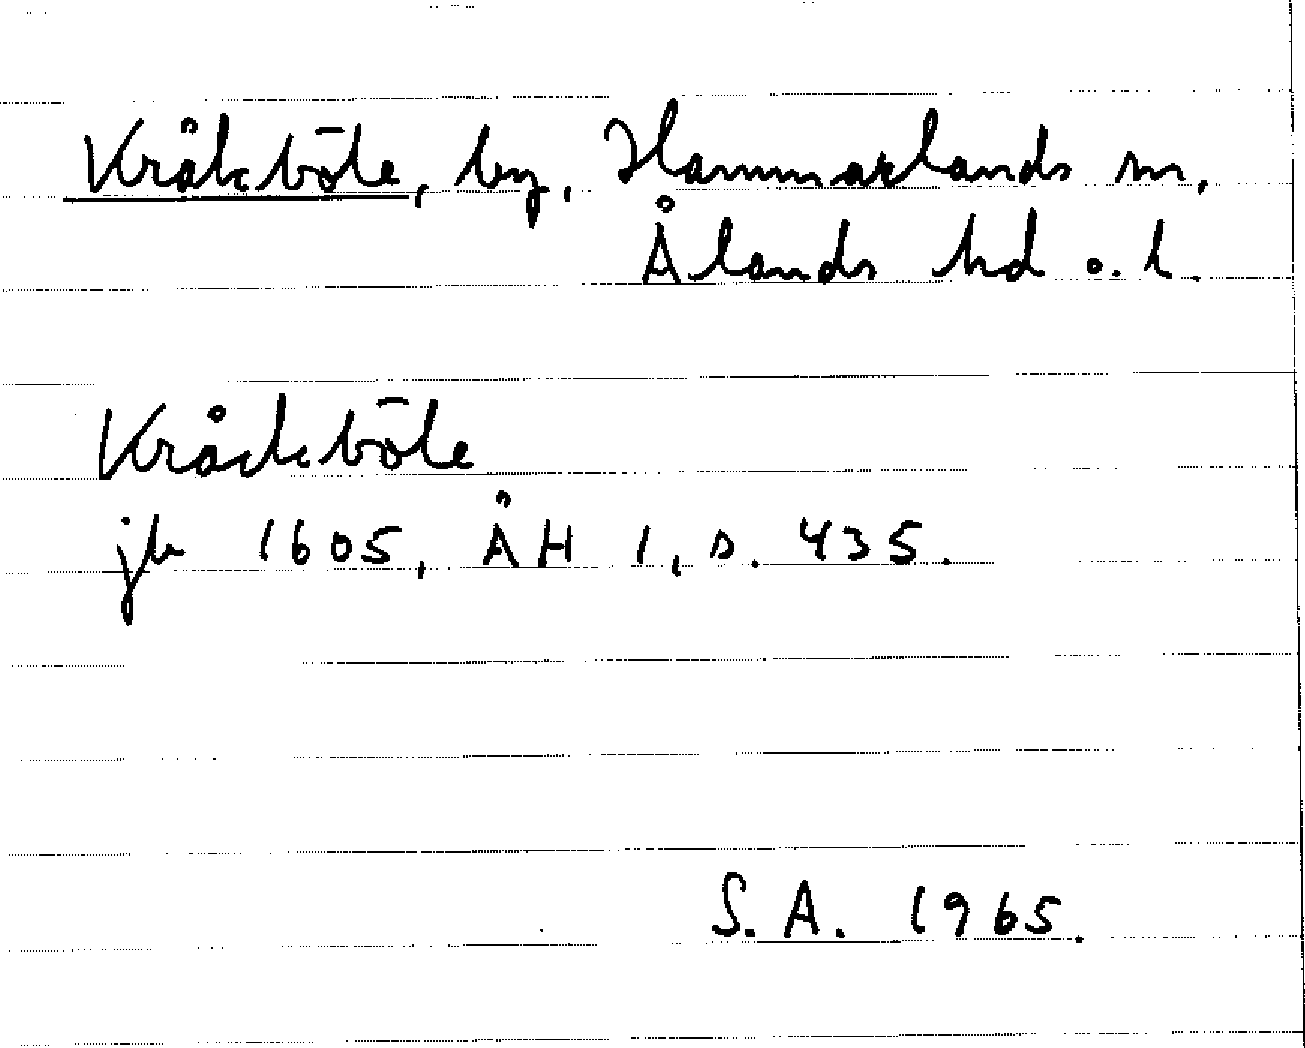 Kråkböle, by, Hammarlands sn,
Ålands hd o. l.
Kråckböle
jb 1605, ÅH 1, s. 435.
S.A. 1965.